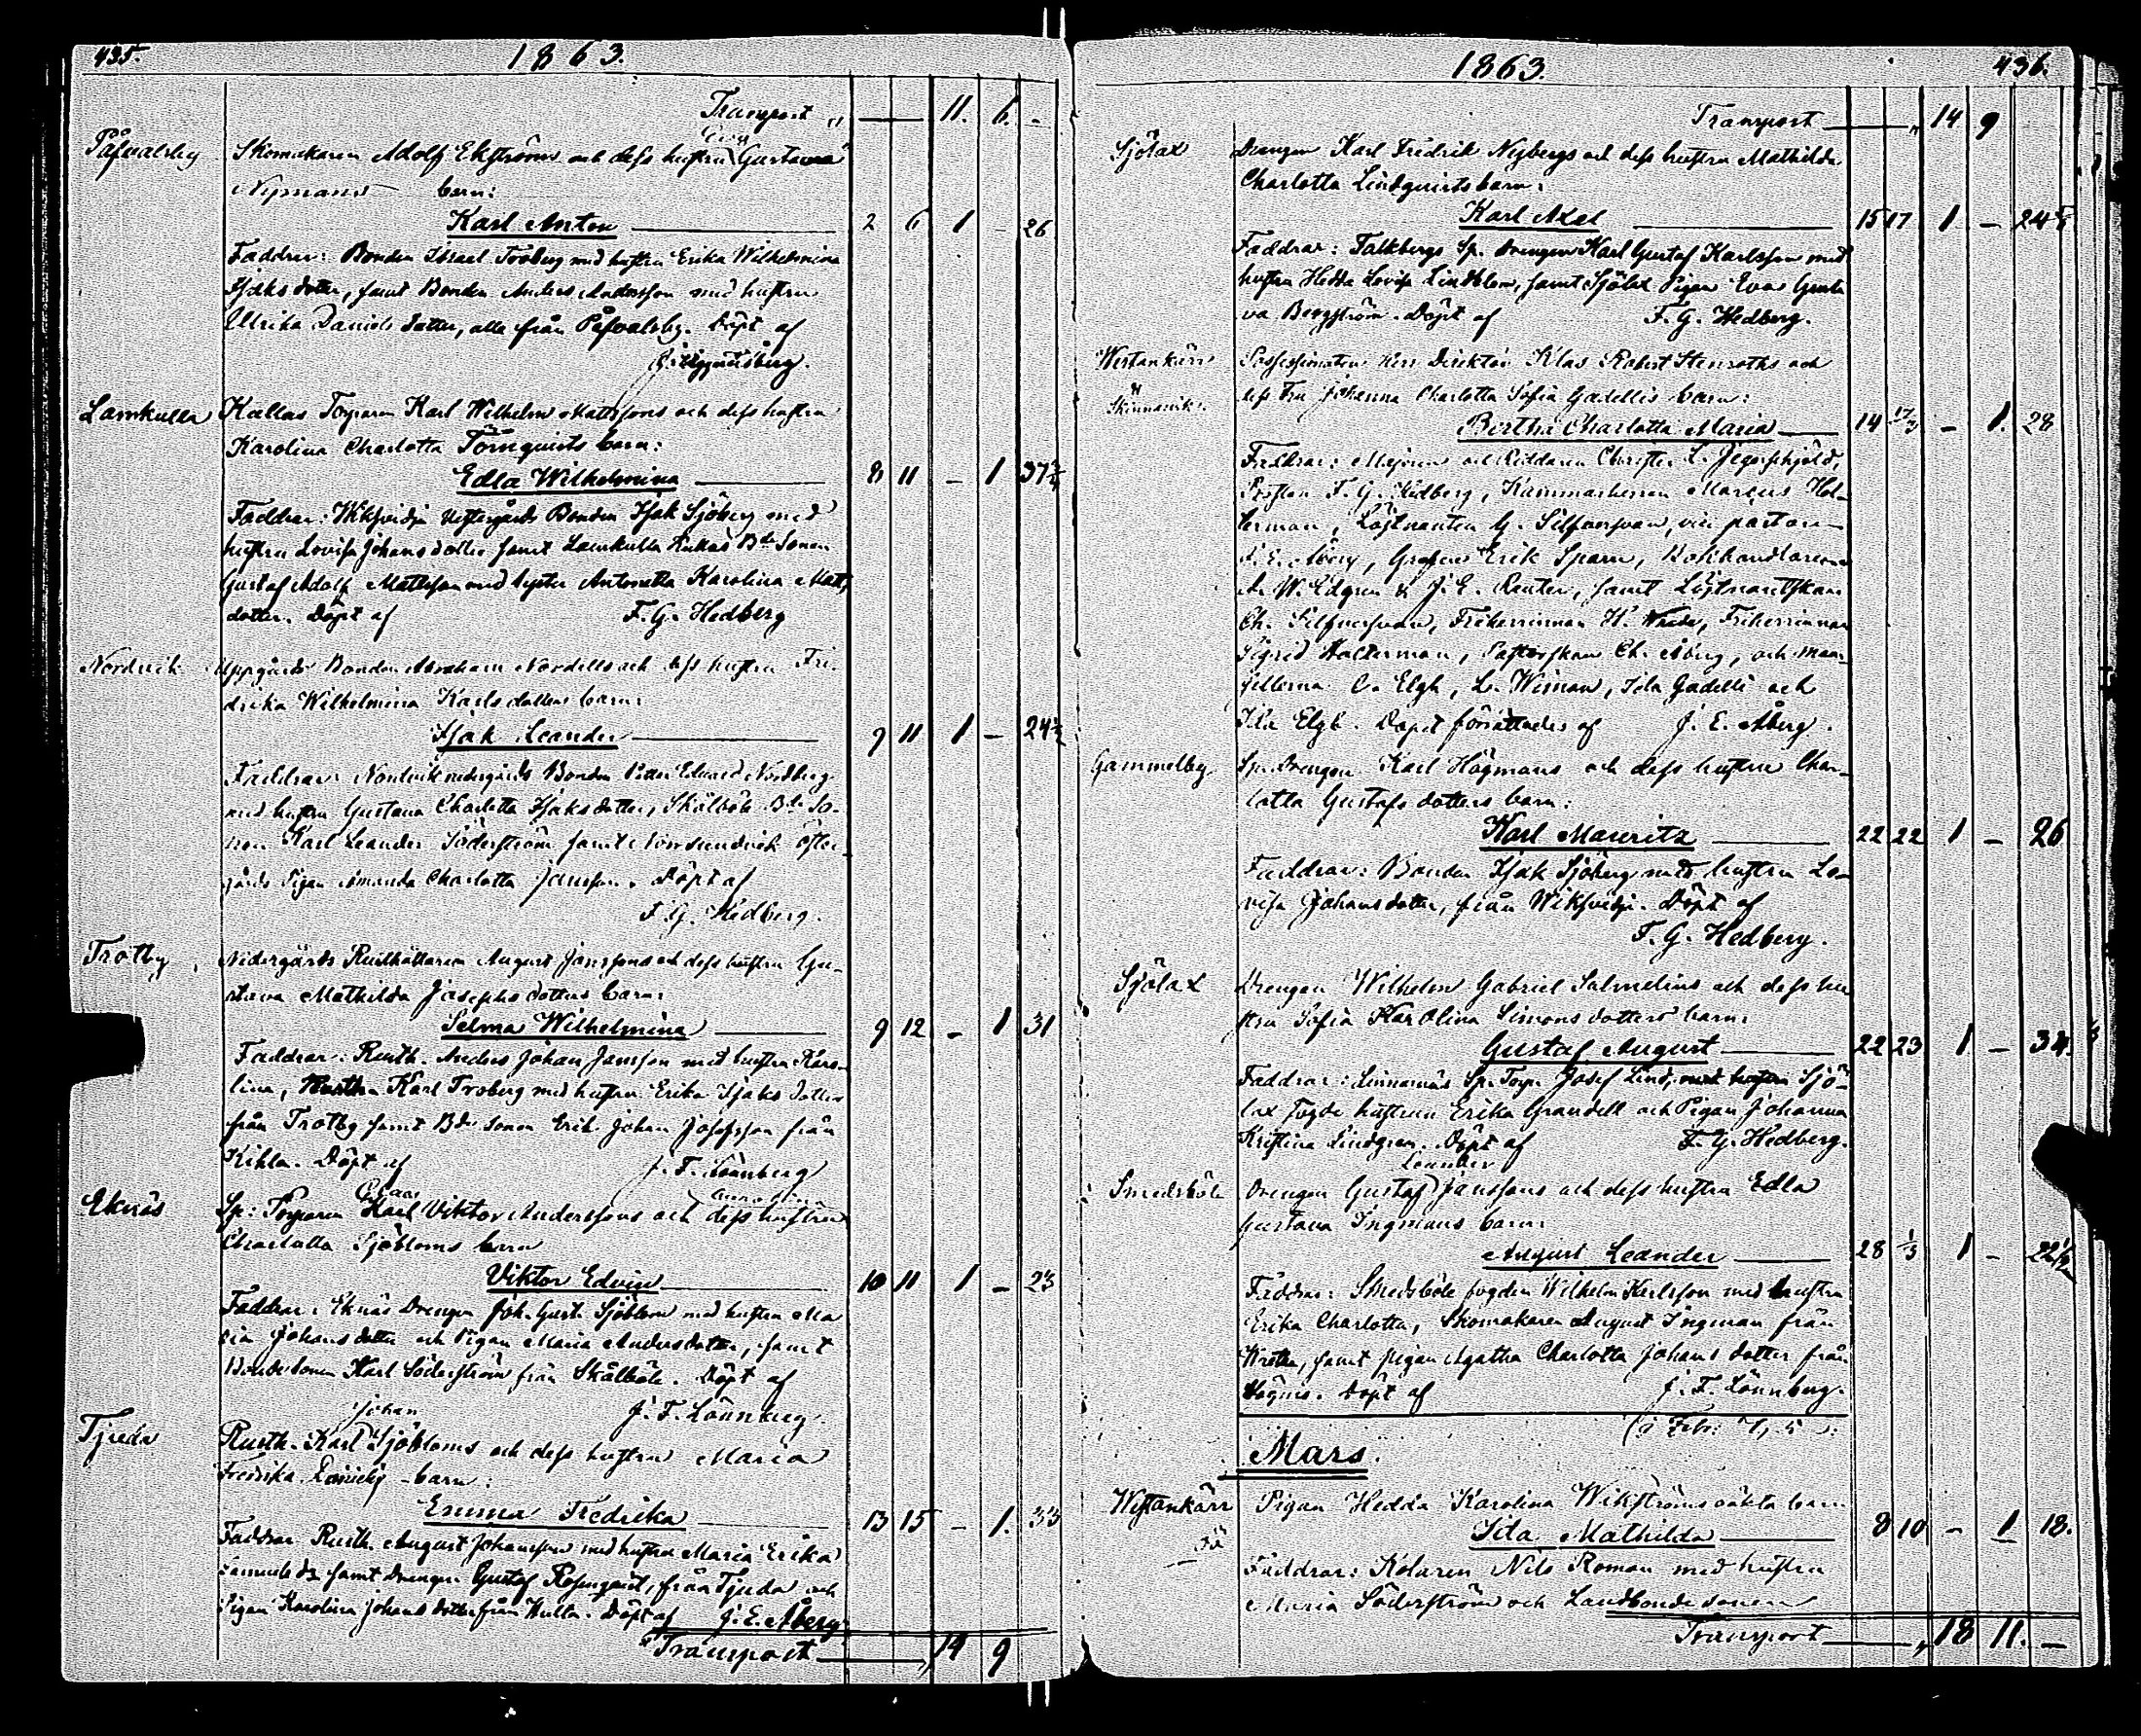 435.
1863.
Transport " — 11. 6. -
Påfvalsby Skomakaren Adolf Ekström och dess hustru Eva Gustava
Nymans barn:
Karl Anton 2 6 1 - 26
Faddrar: Bonden Israel Troberg med hustru Erika Wilhelmina
Isaks dotter, samt Bonden Anders Andersson med hustru
Ulrika Daniels dotter, alla från Påfvalsby. Döpt af
Lamkulla Kullas Torparen Karl Wilhelm Mattssons och dess hustru
Karolina Charlotta Törnquists barn:
Edla Wilhelmina 8 11 - 1 37½
Faddrar: Wiksvidja Westergårds Bonden Isak Sjöberg med
hustru Lovisa Johans dotter samt Lamkulla Bde Sonen
Gustaf Adolf Mattsson med syster Antonetta Karolina Matts
dotter. Döpt af F. G. Hedberg
Nordvik Uppgårds Bonden Abraham Nordells och dess hustru Fre-
drika Wilhelmina Karls dotters barn:
Isak Leander 9 11 1 - 24½
Faddrar: Nordvik nedergårds Bonden Petter Edvard Nordberg
med hustru Gustava Charlotta Isaks dotter, Skålböle Bde So-
nen Karl Leander Söderström samt Norrsundvik öfver
gårds Pigan Amanda Charlotta Jansson. Döpt af
F. G. Hedberg.
Trotby Nedergårds Rusthållaren August Janssons och dess hustru Gu-
stava Mathilda Josephs dotters barn:
Selma Wilhelmina 9 12 - 1 31
Faddrar: Rusth. Anders Johan Jansson med hustru Karo-
lina, Karl Troberg med hustru Erika Isaks dotter
från Trotby samt Bde sonen Erik Johan Josefsson från
Kihla. Döpt af J. F. Lönnberg
Eknäs Sp: Torparen Karl Viktor Anderssons och dess hustru Carolina
Charlotta Sjöbloms barn
Viktor Edvin 10 11 1 - 23
Faddrar: Eknäs Drengen Joh. Gust. Sjöblom med hustru Ma
ria Johans dotter och Pigan Maria Anders dotter, samt
Bonde Sonen Karl Söderström från Skålböle. Döpt af
J. F. Lönnberg.
Tjuda Rusth. Karl Johan Sjöbloms och dess hustru Maria
Fredrika barn:
Emma Fredrika 13 15 - 1. 33
Faddrar Rusth. August Johansson med hustru Maria Erika
Samuels dr samt Drengen Gustaf Rosenquist, från Tjuda och
Pigan Karolina Johans dotter från Hulla. Döpt af J. E. Åberg
Transport " 14 9
1863.
436.
Transport " 14 9
Sjölax Drengen Karl Fredrik Nybergs och dess hustru Mathilda
Charlotta Lindquists barn:
Karl Axel 15 17 1 - 24
Faddrar: Falkbergs Sp. Drengen Karl Gustaf Karlsson med
hustru Hedda Lovisa Lindblom, samt Sjölax Pigan Eva Gusta
va Bergström. Döpt af F. G. Hedberg.
Westankärr Possessionaten Herr Direktör Klas Robert Stenroths och
å dess Fru Johanna Charlotta Sofia Gadellis barn:
Skinnarvik.
Bertha Charlotta Maria 14 17/3 - 1. 28
Faddrar: Majoren och Riddaren Christfer L. Jegerskjöld,
Prosten F. G. Hedberg, Kammarherren Marcus Hol-
terman, Löjtnanten G. Silfversvan, vice pastorn
J. E. Åberg, Grefven Erik Sparre, Bokhandlarene
A. W. Edgren & J. E. Reuter, samt Löjtnantskan
Ch. Silfversvan, Friherrinnan H. Wrede, Friherrinnan
Sigrid Holterman, Pastorskan Ch. Åberg, och Mam-
sellerna C. Elgh, L. Wiman, Ida Gadelli och
Ida Elgh. Dopet förrättades af J. E. Åberg.
Gammelby Sp. Drengen Karl Högmans och dess hustru Char-
lotta Gustafs dotters barn:
Karl Mauritz 22 22 1 - 26
Faddrar: Bonden Isak Sjöberg med hustru Lo-
visa Johans dotter, från Wiksvidja. Döpt af
F. G. Hedberg.
Sjölax Drengen Wilhelm Gabriel Salmelins och dess hu
stru Sofia Karolina Simons dotters barn:
Gustaf August 22 23 1 - 34.
Faddrar: Linnarnäs Sp. Torp. Josef Lind, Sjö-
lax fogde hustrun Erika Grandell och Pigan Johanna
Kristina Lindgren. Döpt af F. G. Hedberg.
Smedsböle Drengen Gustaf Leander Janssons och dess hustru Edla
Gustava Ingmans barn:
August Leander 28 1/3 1 - 22½
Faddrar: Smedsböle fogden Wilhelm Karlsson med hustru
Erika Charlotta, Skomakaren August Ingman från
samt pigan Agatha Charlotta Johans dotter från
Högnäs. Döpt af J. F. Lönnberg.
(i Febr. 7, 5
Mars.
Westankärr Pigan Hedda Karolina Wikströms oäkta barn
Ida Mathilda 8 10 - 1 18.
Faddrar: Kolaren Nils Roman med hustru
Maria Söderström och Landbonde sonen
Transport " 18 11. -